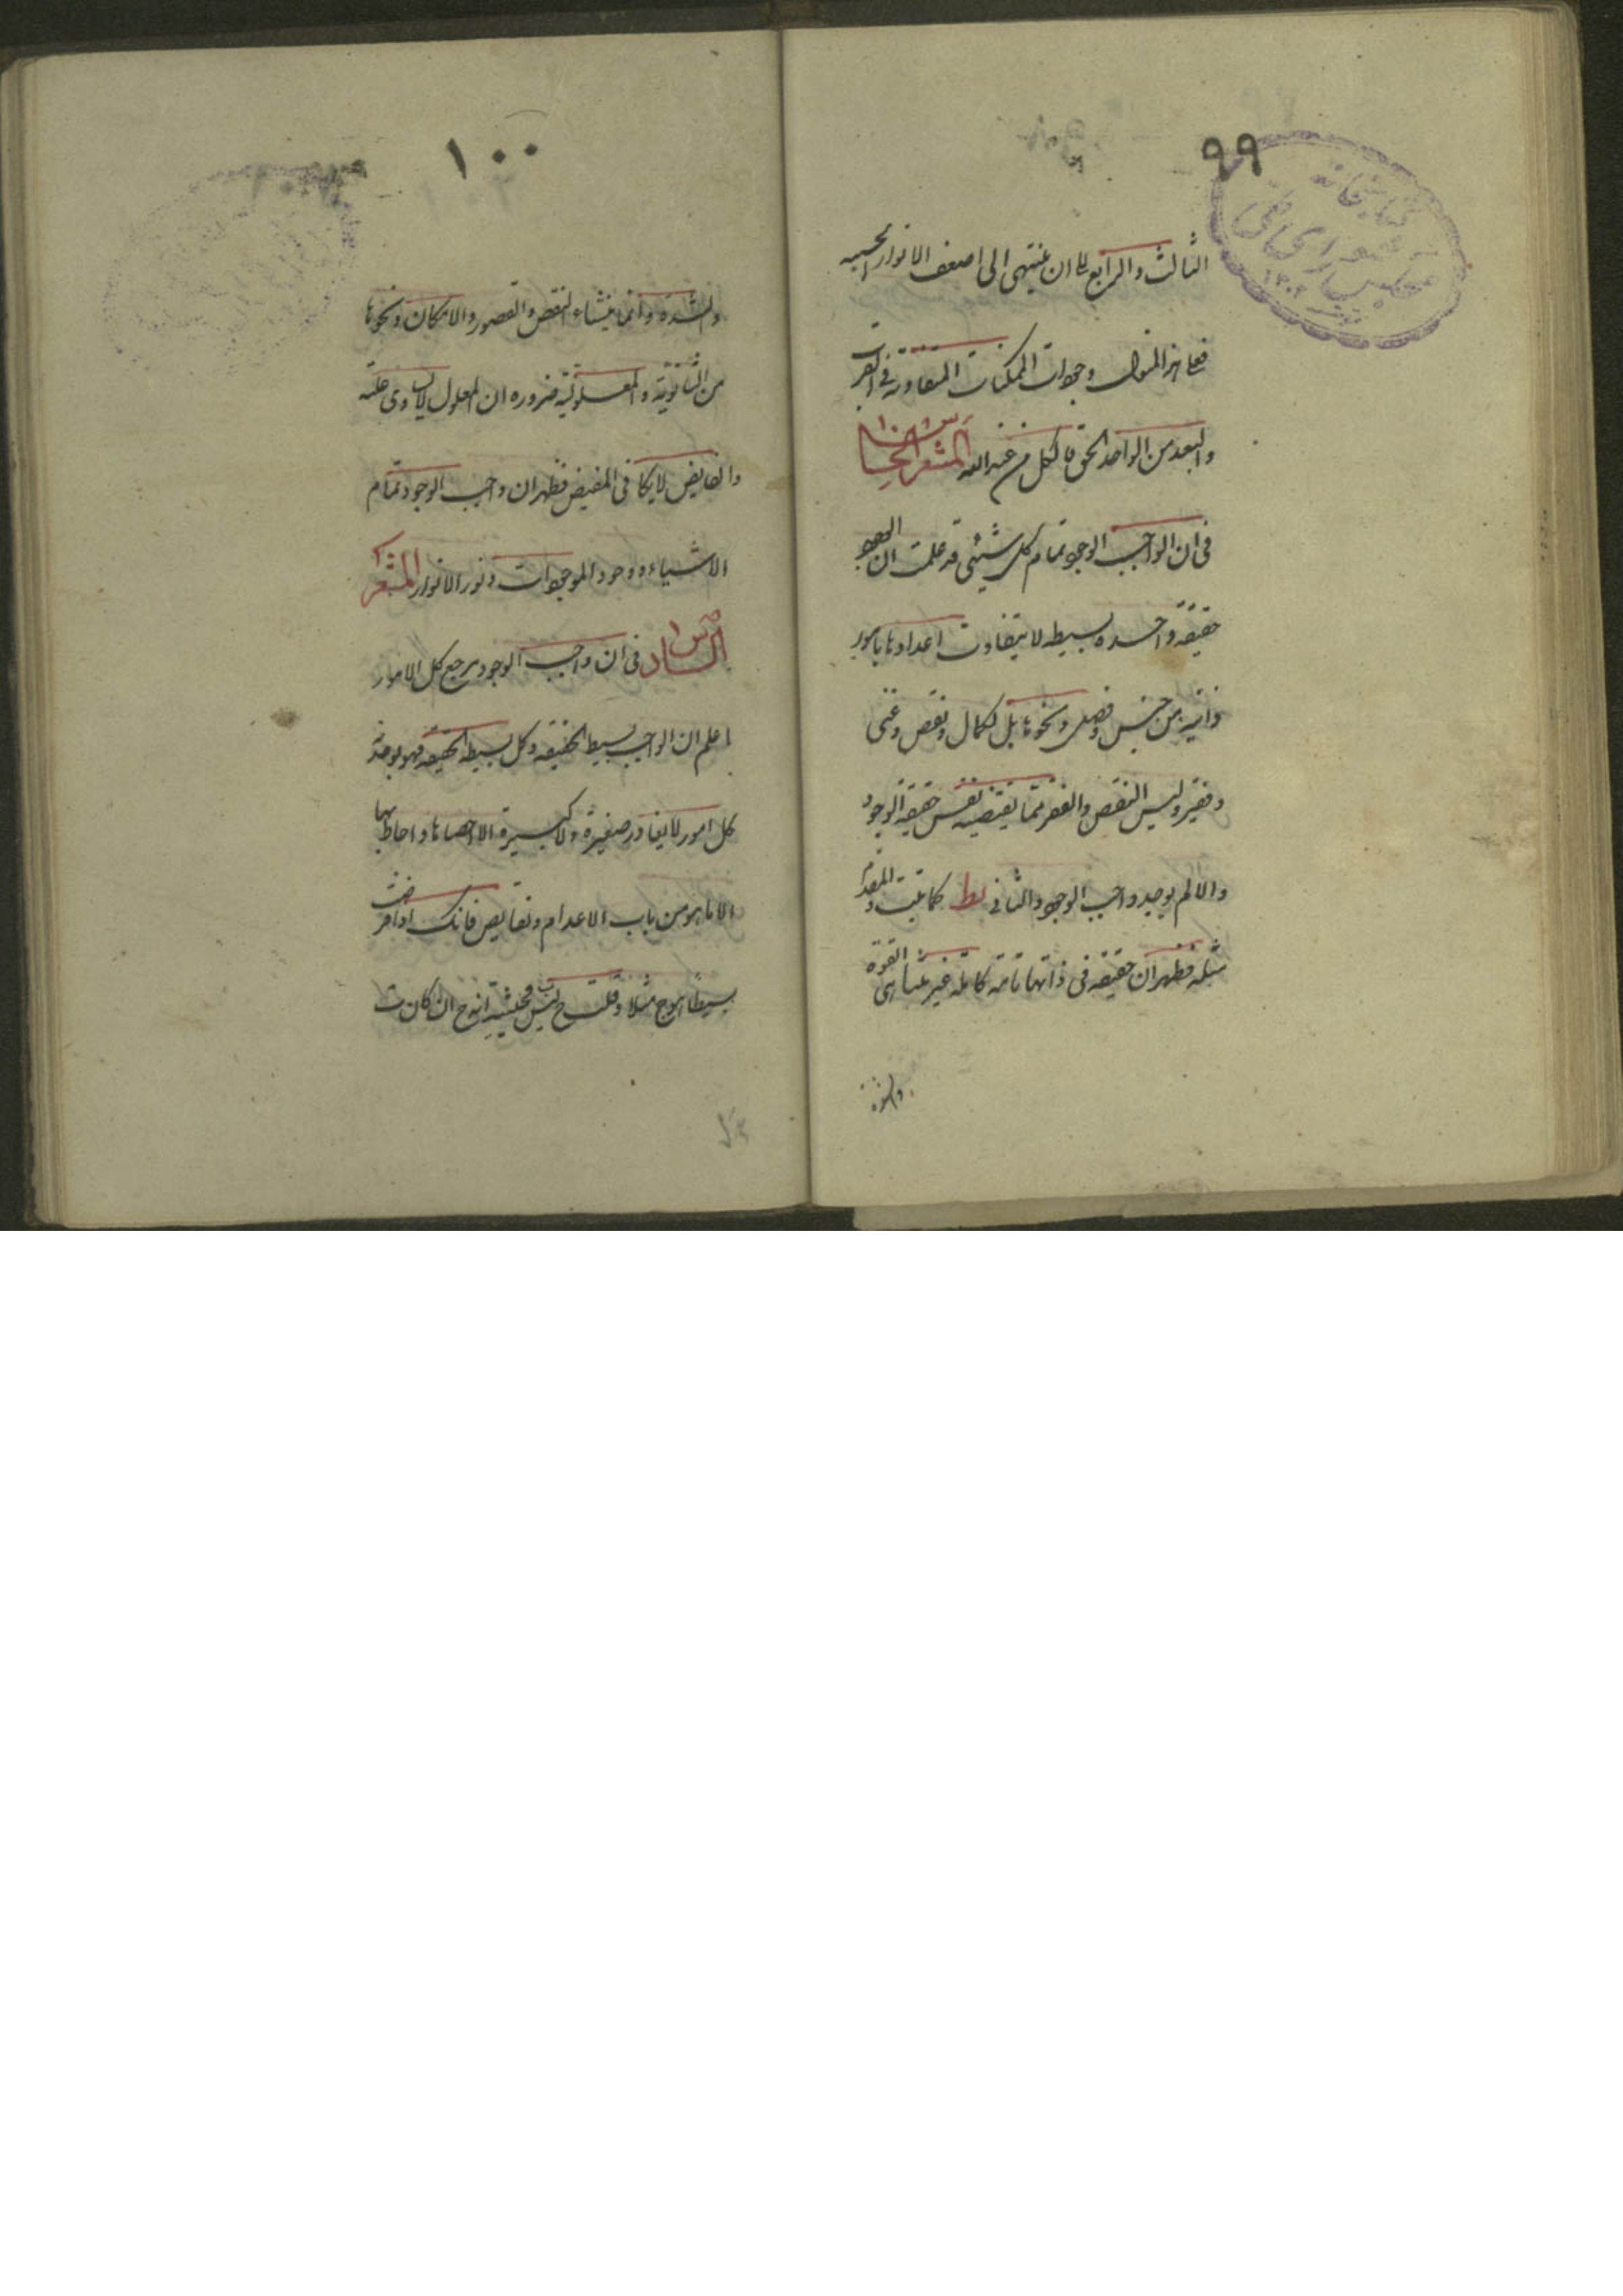 ٩٩
كتابخانه
مجلس شورای ملی
الثالث والرابع الى ان ينتهى الى اضعف الانوار الحسيه
فعلى هذا المنوال وجودات الممكنات المتفاوتة فى القرب
والبعد من الواحد الحق فالكل من عند الله المشعر الخامس
فى ان الواجب الوجود تمام كل شيئى قد علمت ان الوجود
حقيقه واحده بسيطه لا يتفاوت اعدادها بامور
ذاتيه من جنس وفصل ونحوها بل بكمال ونقص وغنى
وفقر وليس النقص والفقر مما يقتضيه نفس حقيقه الوجود
والا لم يوجد واجب الوجود والثانى بط كما ثبت والمقدم
مثله فظهر ان حقيقه فى ذاتها تامة كاملة غير متناهى القوة
والشدة
١٠٠
والشدة وانما ينشاء النقص والقصور والامكان ونحوها
من الثانوية والمعلولية ضروره ان المعلول لا يساوى علته
والفايض لا يكافى المفيض فظهر ان واجب الوجود تمام
الاشياء ووجود الموجودات ونور الانوار المشعر
السادس فى ان واجب الوجود مرجع كل الامور
اعلم ان الواجب بسيط الحقيقه وكل بسيط الحقيقه فهو بوحدته
كل امور لا يغادر صغيرة ولا كبيرة الا احصاها واحاط بها
الا ما هو من باب الاعدام ونقايص فانك اذا فرضت
بسيطا هو ج مثلا وقلت ج ليس ب فحيثية انه ج ان كانت